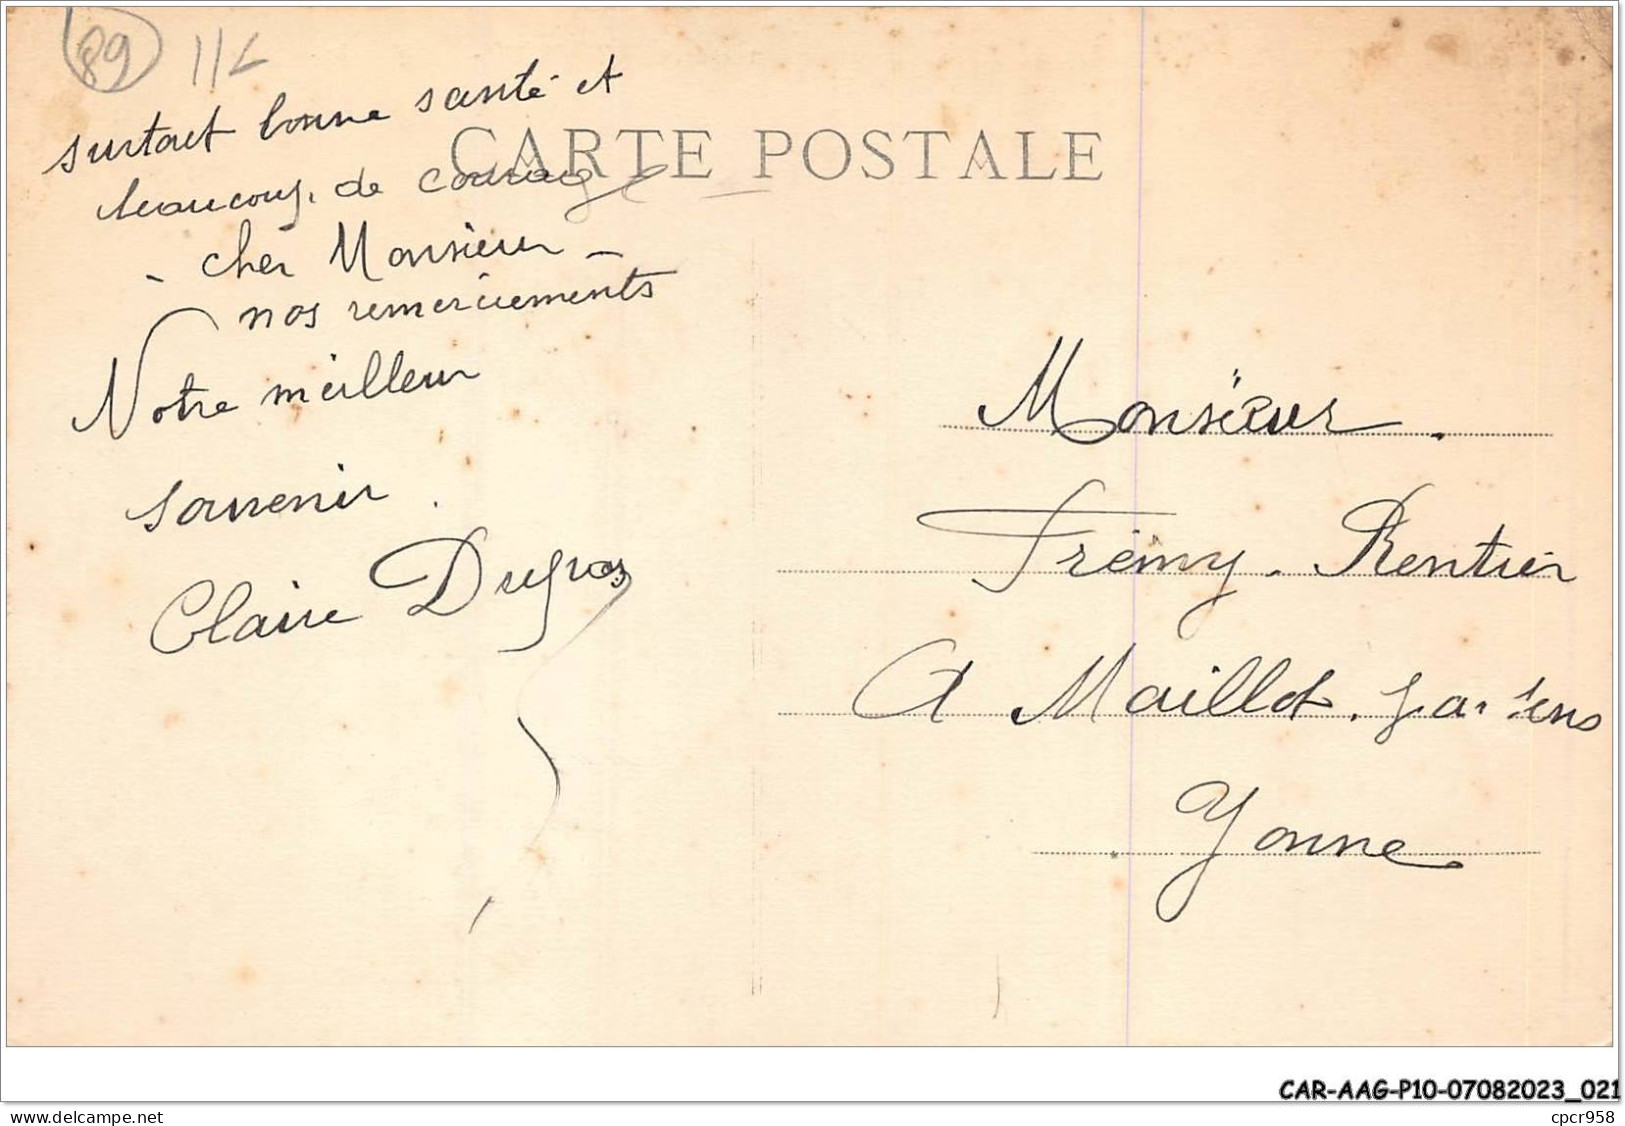 89
surtout bonne santé et
beaucoup de courage
- cher Monsieur -
nos remerciements
Notre meilleur
souvenir.
Claire
CARTE POSTALE
Monsieur
Frémy. Rentier
A Maillot. par Sens
Yonne
CAR-AAG-P10-07082023_021
www.delcampe.net
cpcr958